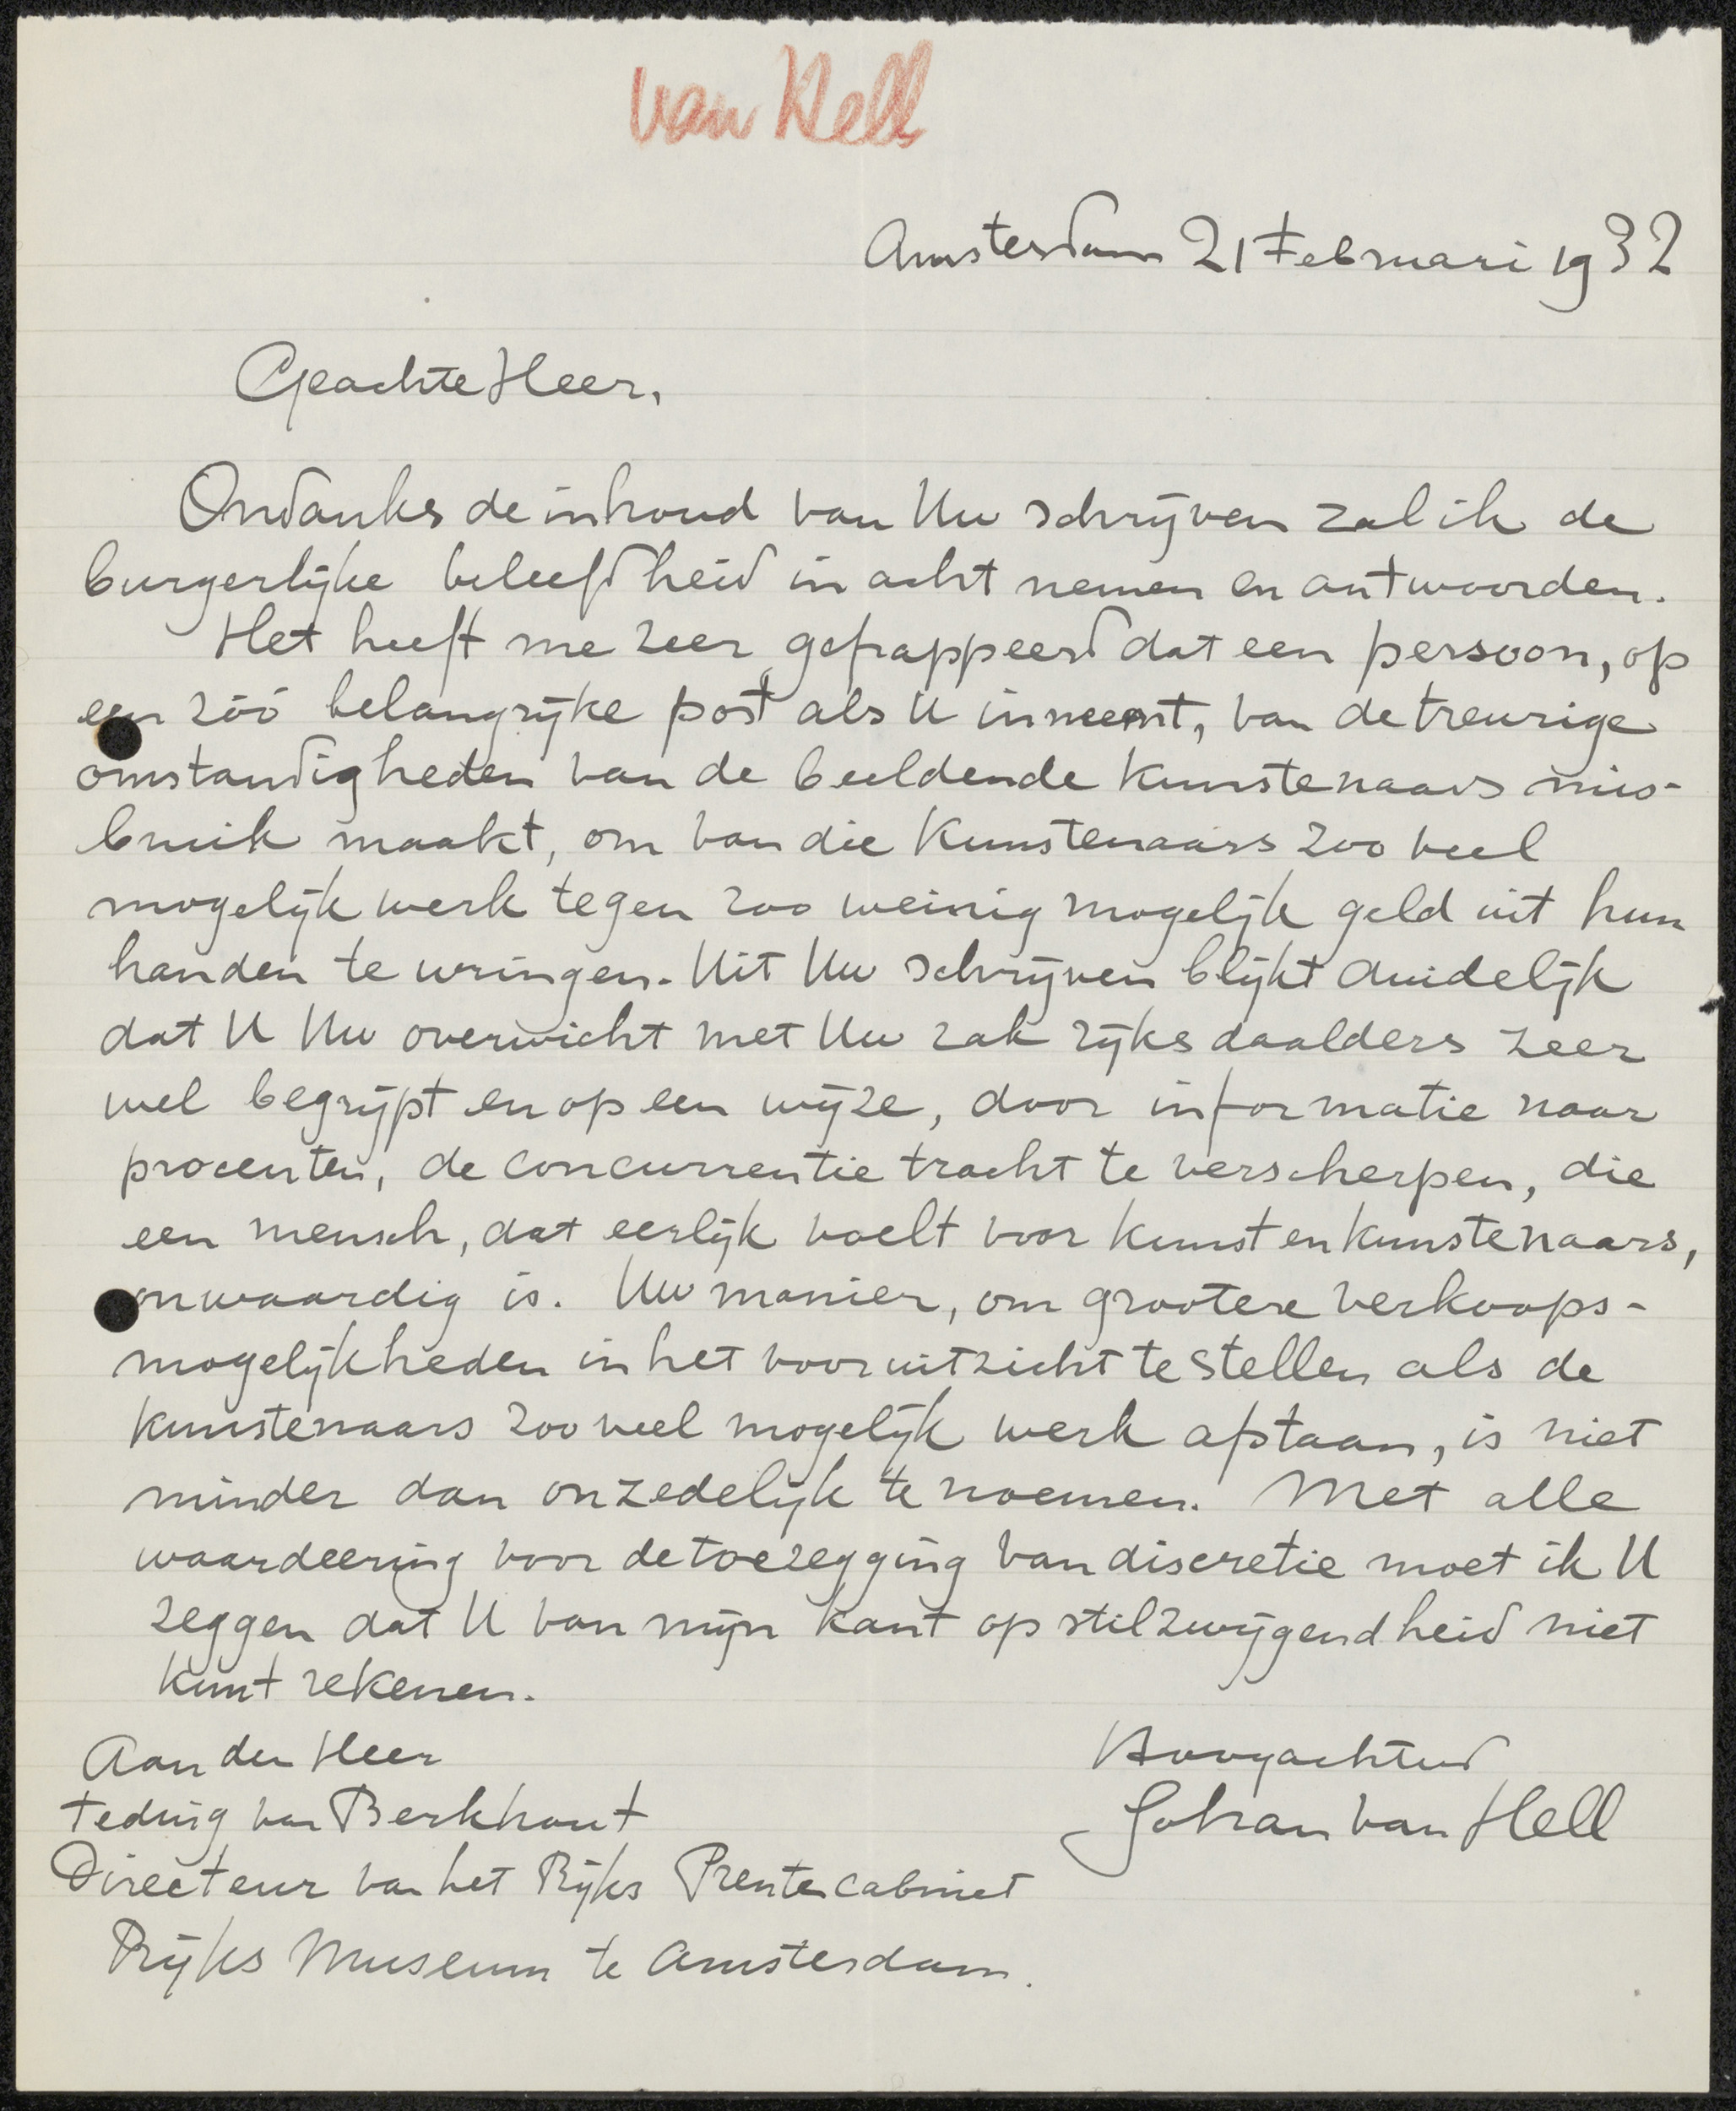 van Hell
Amsterdam 21 Februari 1932
Geachte Heer,
Ondanks de inhoud van Uw schrijven zal ik de
burgerlijke beleefdheid in acht nemen en antwoorden.
Het heeft me zeer gefrappeerd dat een persoon, op
een zóó belangrijke post als U inneemt, van de treurige
omstandigheden van de beeldende kunstenaars mis-
bruik maakt, om van die kunstenaars zoo veel
mogelijk werk tegen zoo weinig mogelijk geld uit hun
handen te wringen. Uit Uw schrijven blijkt duidelijk
dat U Uw overwicht met Uw zak rijksdaalders zeer
wel begrijpt en op een wijze, door informatie naar
procenten, de concurrentie tracht te verscherpen, die
een mensch, dat eerlijk voelt voor kunst en kunstenaars,
onwaardig is. Uw manier, om grootere verkoops-
mogelijkheden in het vooruitzicht te stellen als de
kunstenaars zooveel mogelijk werk afstaan, is niet
minder dan onzedelijk te noemen. Met alle
waardeering voor de toezegging van discretie moet ik U
zeggen dat U van mijn kant op stilzwijgendheid niet
kunt rekenen.
Aan den Heer
Teding van Berkhout
Directeur van het Rijks Prentencabinet
Rijks Museum te Amsterdam.
Hoogachtend
Johan van Hell